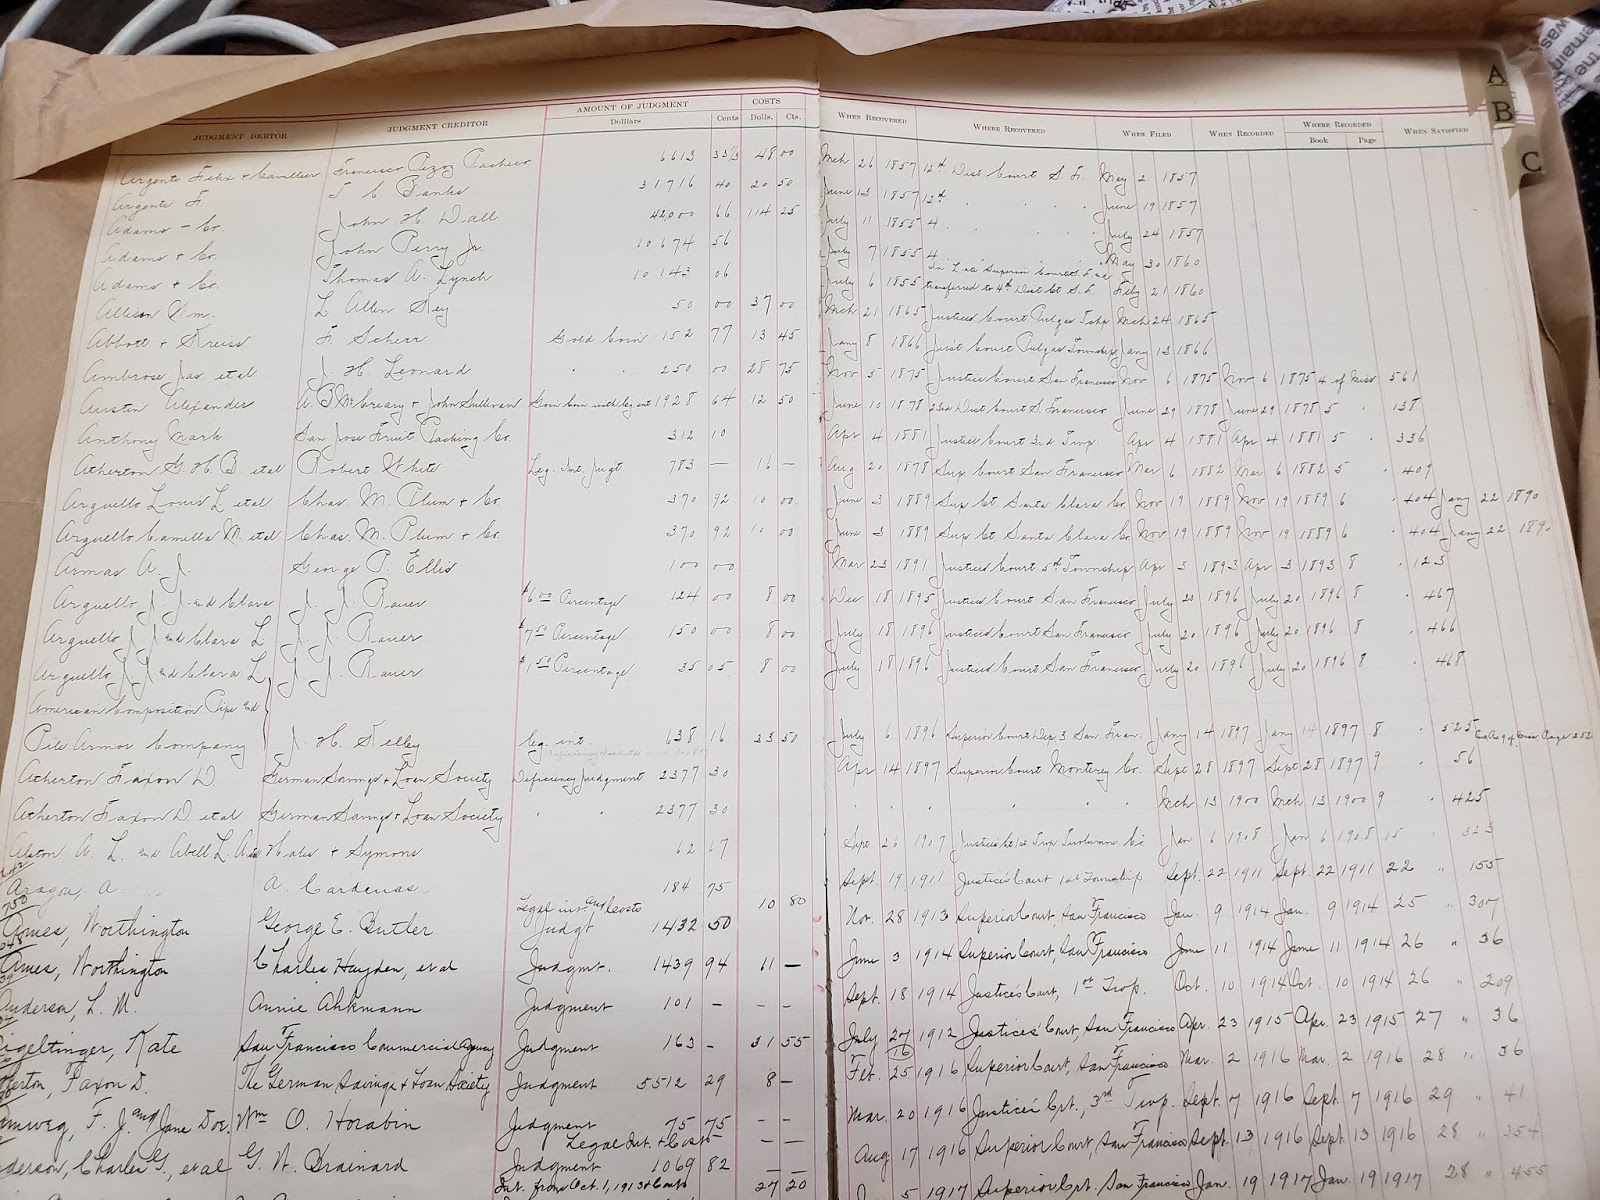 A
B
C
AMOUNT OF JUDGMENT COSTS WHERE RECORDED
JUDGMENT DEBTOR JUDGMENT CREDITOR Dolllars Cents Dolls. Cts. WHEN RECOVERED WHERE RECOVERED WHEN FILED WHEN RECORDED Book Page WHEN SATISFIED
Argenti Felix + Francisco Perez Pacheco 6613 33/3 48 00 Mch 26 1857 12th Dist Court S. F. May 2 1857
Argenti F. T. C. Banks 31716 40 20 50 June 13 1857 12th June 19 1857
Adams - Co. John H. Wall 42,000 66 114 25 July 11 1855 4 July 24 1857
Adams + Co. John Perry Jr. 10674 56 July 7 1855 4 May 30 1860
Adams + Co. Thomas A. Lynch 10143 06 July 6 1855 transferred to 4th Dist Ct S. F. Feby 21 1860
Allison Wm. L Allen 50 00 37 00 Mch 21 1865 Justices Court Pulgas Tshp Mch 24 1865
Abbott + F. Scherr Gold Coin 152 77 13 45 Jany 8 1866 Just Court Pulgas Township Jany 13 1866
Ambrose Jas. et al J. H. Leonard " " 250 00 28 75 Nov 5 1875 Justice Court San Francisco Nov 6 1875 Nov 6 1875 4 of Misc 561
Austin Alexander A. B. McCreary + John Sullivan Gold Coin with leg int 1928 64 12 50 June 10 1878 23rd Dist Court S. Francisco June 29 1878 June 29 1878 5 " 138
Anthony Mark San Jose Fruit Packing Co. 312 10 Apr 4 1881 Justice Court 3rd Twp. Apr 4 1881 Apr 4 1881 5 " 336
Atherton G. H. B. et al Robert White Leg. Int. Jugt 783 — 16 — Aug 20 1878 Sup Court San Francisco Mar 6 1882 Mar 6 1882 5 " 409
Arguello Louis L et al Chas. M. Plum + Co. 370 92 10 00 June 3 1889 Sup Ct. Santa Clara Co. Nov 19 1889 Nov 19 1889 6 " 404 Jany 22 1890
Arguello Camilla M. et al Chas. M. Plum + Co. 370 92 10 00 June 3 1889 Sup Ct Santa Clara Co Nov 19 1889 Nov 19 1889 6 " 404 Jany 22 1890
Armas A J. George P. Ellis 100 00 Mar 23 1891 Justices Court 5th Township Apr 3 1893 Apr 3 1893 8 " 123
Arguello J. J. and Clara J. J. Rauer $6 00 Percentage 124 00 8 00 Dec 18 1895 Justice Court San Francisco July 20 1896 July 20 1896 8 " 467
Arguello J. J. and Clara L J. J. Rauer $7 50 Percentage 150 00 8 00 July 18 1896 Justice Court San Francisco July 20 1896 July 20 1896 8 " 466
Arguello J. J. and Clara L J. J. Rauer $1 50 Percentage 35 05 8 00 July 18 1896 Justice Court San Francisco July 20 1896 July 20 1896 8 " 468
American Composition Pipe and
Pile Armor Company J. H. Selley leg. int. 638 16 33 50 July 6 1896 Superior Court Dep 3 San Fran. Jany 14 1897 Jany 14 1897 8 " 525
Atherton Faxon D. German Savings + Loan Society Deficiency Judgment 2377 30 Apr 14 1897 Superior Court Monterey Co. Sept 28 1897 Sept 28 1897 9 " 56
Atherton Faxon D. et al German Savings + Loan Society " " 2377 30 " " " " " Mch 13 1900 Mch 13 1900 9 " 425
Alston A. L. and Abell L. Hales + Symons 62 67 Sept 26 1907 Justice Ct 1st Twp Tuolumne Co. Jan 6 1908 Jan 6 1908 15 " 323
Aragon, A. A. Cardenas 184 75 Sept. 19 1911 Justice's Court 1st Township Sept. 22 1911 Sept. 22 1911 22 " 155
Ames, Worthington George E. Butler Legal int. and Costs Judgt 1432 50 10 80 Nov. 28 1913 Superior Court, San Francisco Jan. 9 1914 Jan. 9 1914 25 " 307
Ames, Worthington Charles Hayden, et al Judgmt. 1439 94 11 — June 3 1914 Superior Court, San Francisco June 11 1914 June 11 1914 26 " 36
Anderson, L. M. Annie Ahkmann Judgment 101 - - - Sept. 18 1914 Justice's Court, 1st Twp. Oct. 10 1914 Oct. 10 1914 26 " 209
Kate San Francisco Commercial Agency Judgment 163 - 31 55 July 27 1912 Justice's Court, San Francisco Apr. 23 1915 Apr. 23 1915 27 " 36
Faxon D. The German Savings + Loan Society Judgment 5512 29 8 - Feb. 25 1916 Superior Court, San Francisco Mar. 2 1916 Mar. 2 1916 28 " 36
F. J. and Jane Doe. Wm O. Horabin Judgment 75 75 - - Mar. 20 1916 Justice's Crt., 3rd Twp. Sept. 7 1916 Sept. 7 1916 29 " 41
Legal Int. + Costs
Charles G., et al G. W. Brainard Judgment 1069 82 — — Aug 17 1916 Superior Court, San Francisco Sept. 13 1916 Sept. 13 1916 28 " 354
Int. from Oct. 1, 1913 + Costs 27 20 5 1917 Superior Crt. San Francisco Jan. 19 1917 Jan. 19 1917 28 " 455